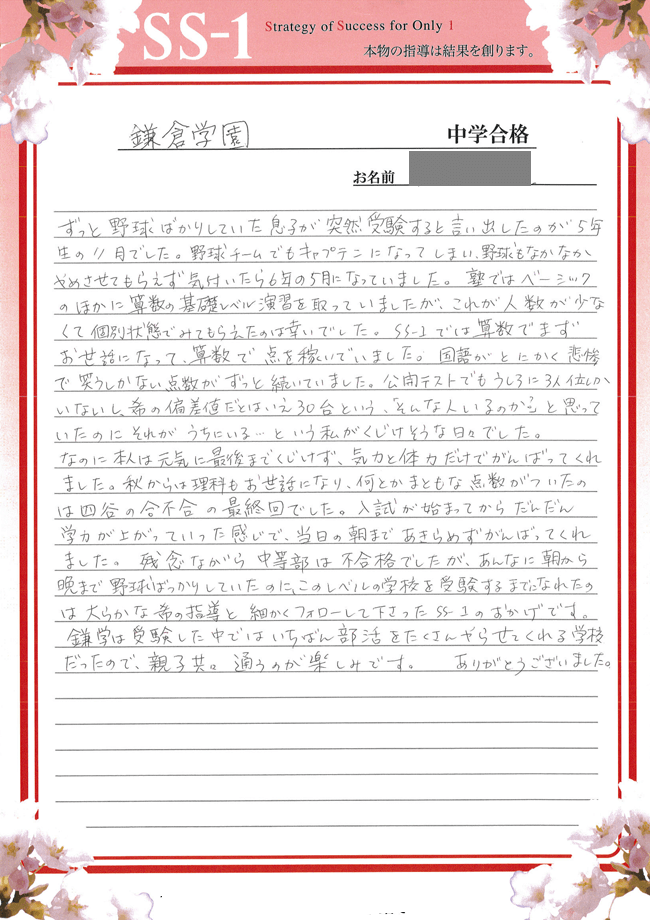 SS-1
Strategy of Success for Only 1
本物の指導は結果を創ります。
鎌倉学園 中学合格
お名前
ずっと野球ばかりしていた息子が突然受験すると言い出したのが5年
生の11月でした。野球チームでもキャプテンになってしまい、野球もなかなか
やめさせてもらえず気付いたら6年の5月になっていました。塾ではベーシック
のほかに算数の基礎レベル演習を取っていましたが、これが人数が少な
くて個別状態でみてもらえたのは幸いでした。SS-1では算数でまず
お世話になって、算数で点を稼いでいました。国語がとにかく悲惨
で笑うしかない点数がずっと続いていました。公開テストでもうしろに3人位しか
いないし、希の偏差値だとはいえ30台という、「そんな人いるのかな」と思って
いたのにそれがうちにいる…という私がくじけそうな日々でした。
なのに本人は元気に最後までくじけず、気力と体力だけでがんばってくれ
ました。秋からは理科もお世話になり、何とかまともな点数がついたの
は四谷の合不合の最終回でした。入試が始まってからだんだん
学力が上がっていった感じで、当日の朝まであきらめずがんばってくれ
ました。残念ながら中等部は不合格でしたが、あんなに朝から
晩まで野球ばっかりしていたのに、このレベルの学校を受験するまでになれたの
は大らかな希の指導と細かくフォローして下さったSS-1のおかげです。
鎌学は受験した中ではいちばん部活をたくさんやらせてくれる学校
だったので、親子共。通うのが楽しみです。 ありがとうございました。